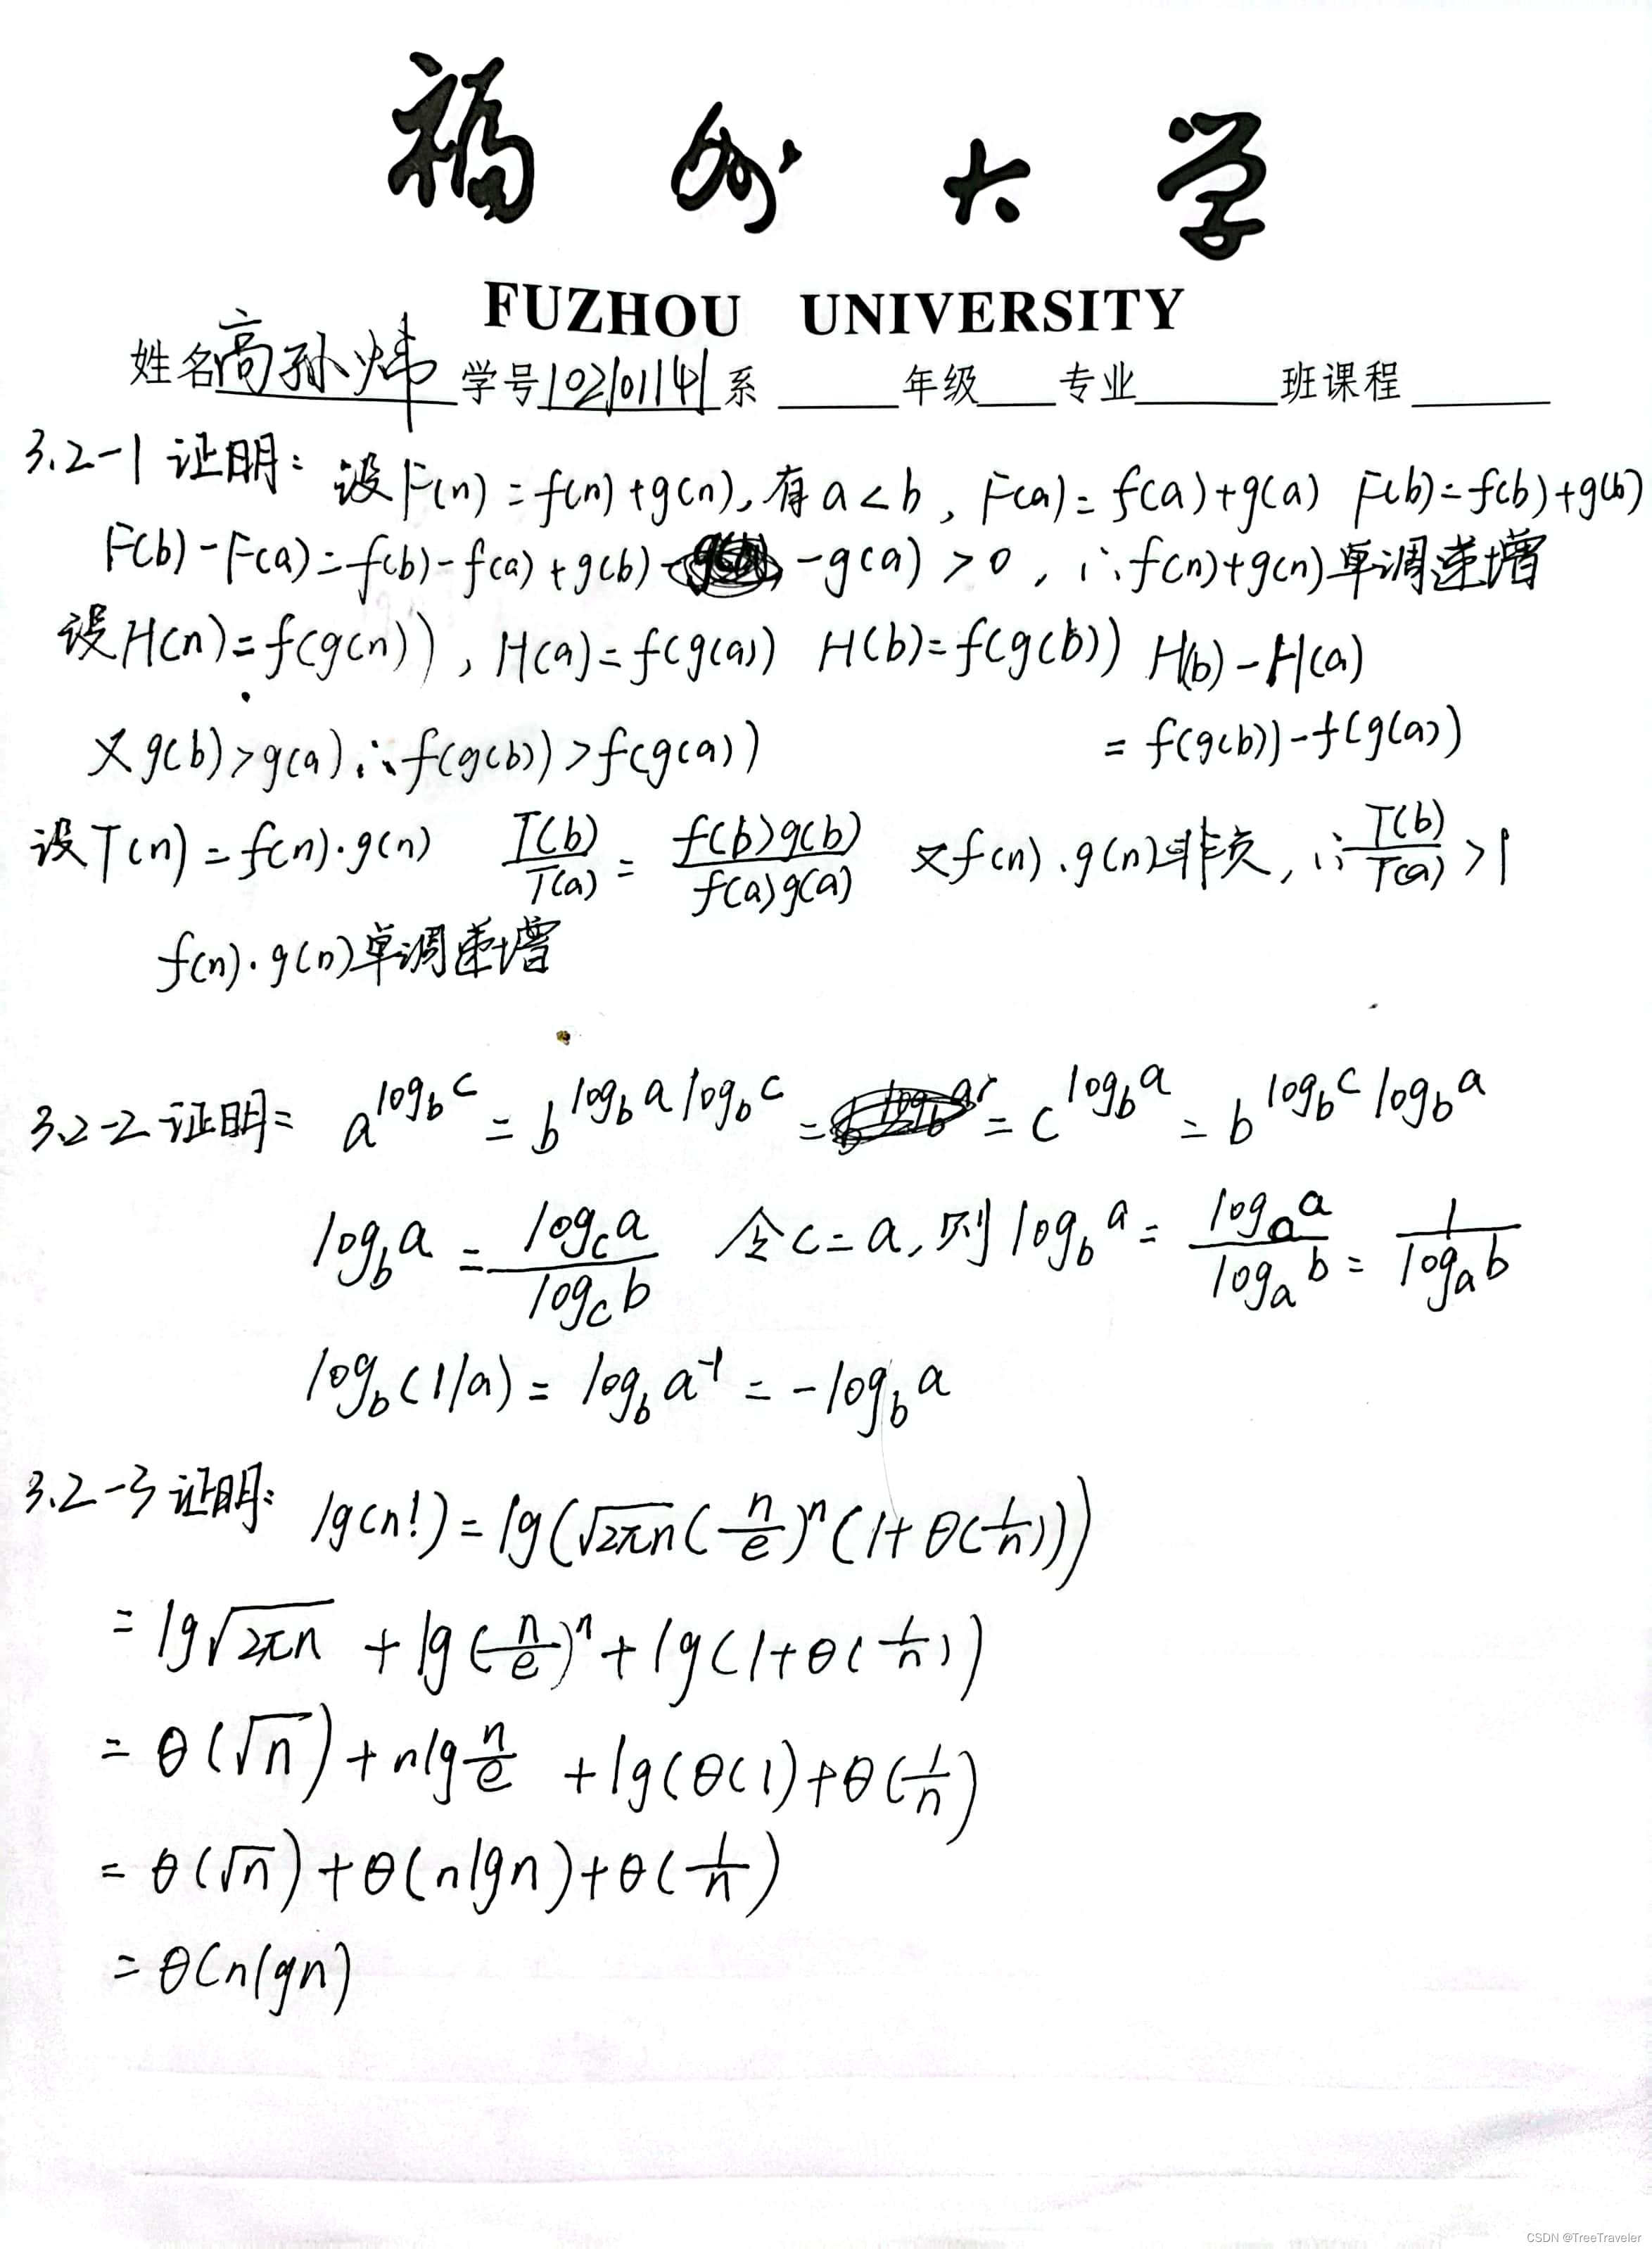 福州大学
FUZHOU UNIVERSITY
姓名高孙炜 学号102101141 系 年级 专业 班课程
3.2-1 证明: 设F(n)=f(n)+g(n), 有a<b, F(a)=f(a)+g(a) F(b)=f(b)+g(b)
F(b)-F(a)=f(b)-f(a)+g(b) -g(a)>0, ∴f(n)+g(n)单调递增
设H(n)=f(g(n)), H(a)=f(g(a)) H(b)=f(g(b)) H(b)-H(a)
=f(g(b))-f(g(a))
又g(b)>g(a)∴f(g(b))>f(g(a))
设T(n)=f(n)·g(n) T(b)/T(a) = f(b)g(b)/f(a)g(a) 又f(n)、g(n)非负, ∴T(b)/T(a)>1
f(n)·g(n)单调递增
3.2-2 证明: a^{log_b c} = b^{log_b a log_b c} = = c^{log_b a} = b^{log_b c log_b a}
log_b a = log_c a/log_c b 令c=a, 则log_b a = log_a a/log_a b = 1/log_a b
log_b(1/a) = log_b a^{-1} = -log_b a
3.2-3 证明: lg(n!) = lg(√2πn(n/e)^n(1+θ(1/n)))
= lg√2πn + lg(n/e)^n + lg(1+θ(1/n))
= θ(√n) + nlg n/e + lg(θ(1)+θ(1/n)
= θ(√n)+θ(nlgn)+θ(1/n)
= θ(nlgn)
CSDN @TreeTraveler